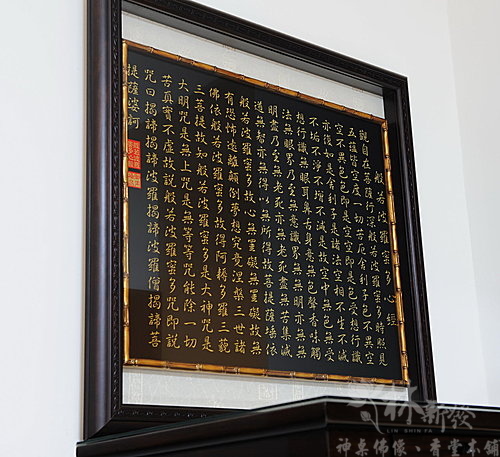 般若波羅蜜多心經
觀自在菩薩行深般若波羅蜜多時照見
五蘊皆空度一切苦厄舍利子色不異空
空不異色色即是空空即是色受想行識
亦復如是舍利子是諸法空相不生不滅
不垢不淨不增不減是故空中無色無受
想行識無眼耳鼻舌身意無色聲香味觸
法無眼界乃至無意識界無無明亦無無
明盡乃至無老死亦無老死盡無苦集滅
道無智亦無得以無所得故菩提薩埵依
般若波羅蜜多故心無罣礙無罣礙故無
有恐怖遠離顛倒夢想究竟涅槃三世諸
佛依般若波羅蜜多故得阿耨多羅三藐
三菩提故知般若波羅蜜多是大神咒是
大明咒是無上咒是無等等咒能除一切
苦真實不虛故說般若波羅蜜多咒即說
咒曰揭諦揭諦波羅揭諦波羅僧揭諦菩
提薩婆訶
林新發
LIN SHIN FA
神桌佛像、青堂本舖